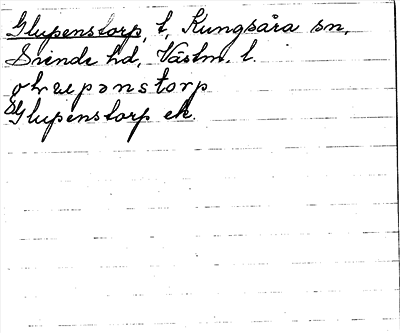 Glupenstorp, t, Kungsåra sn,
Siende hd, Västm. l.
Glupenstorp ek.